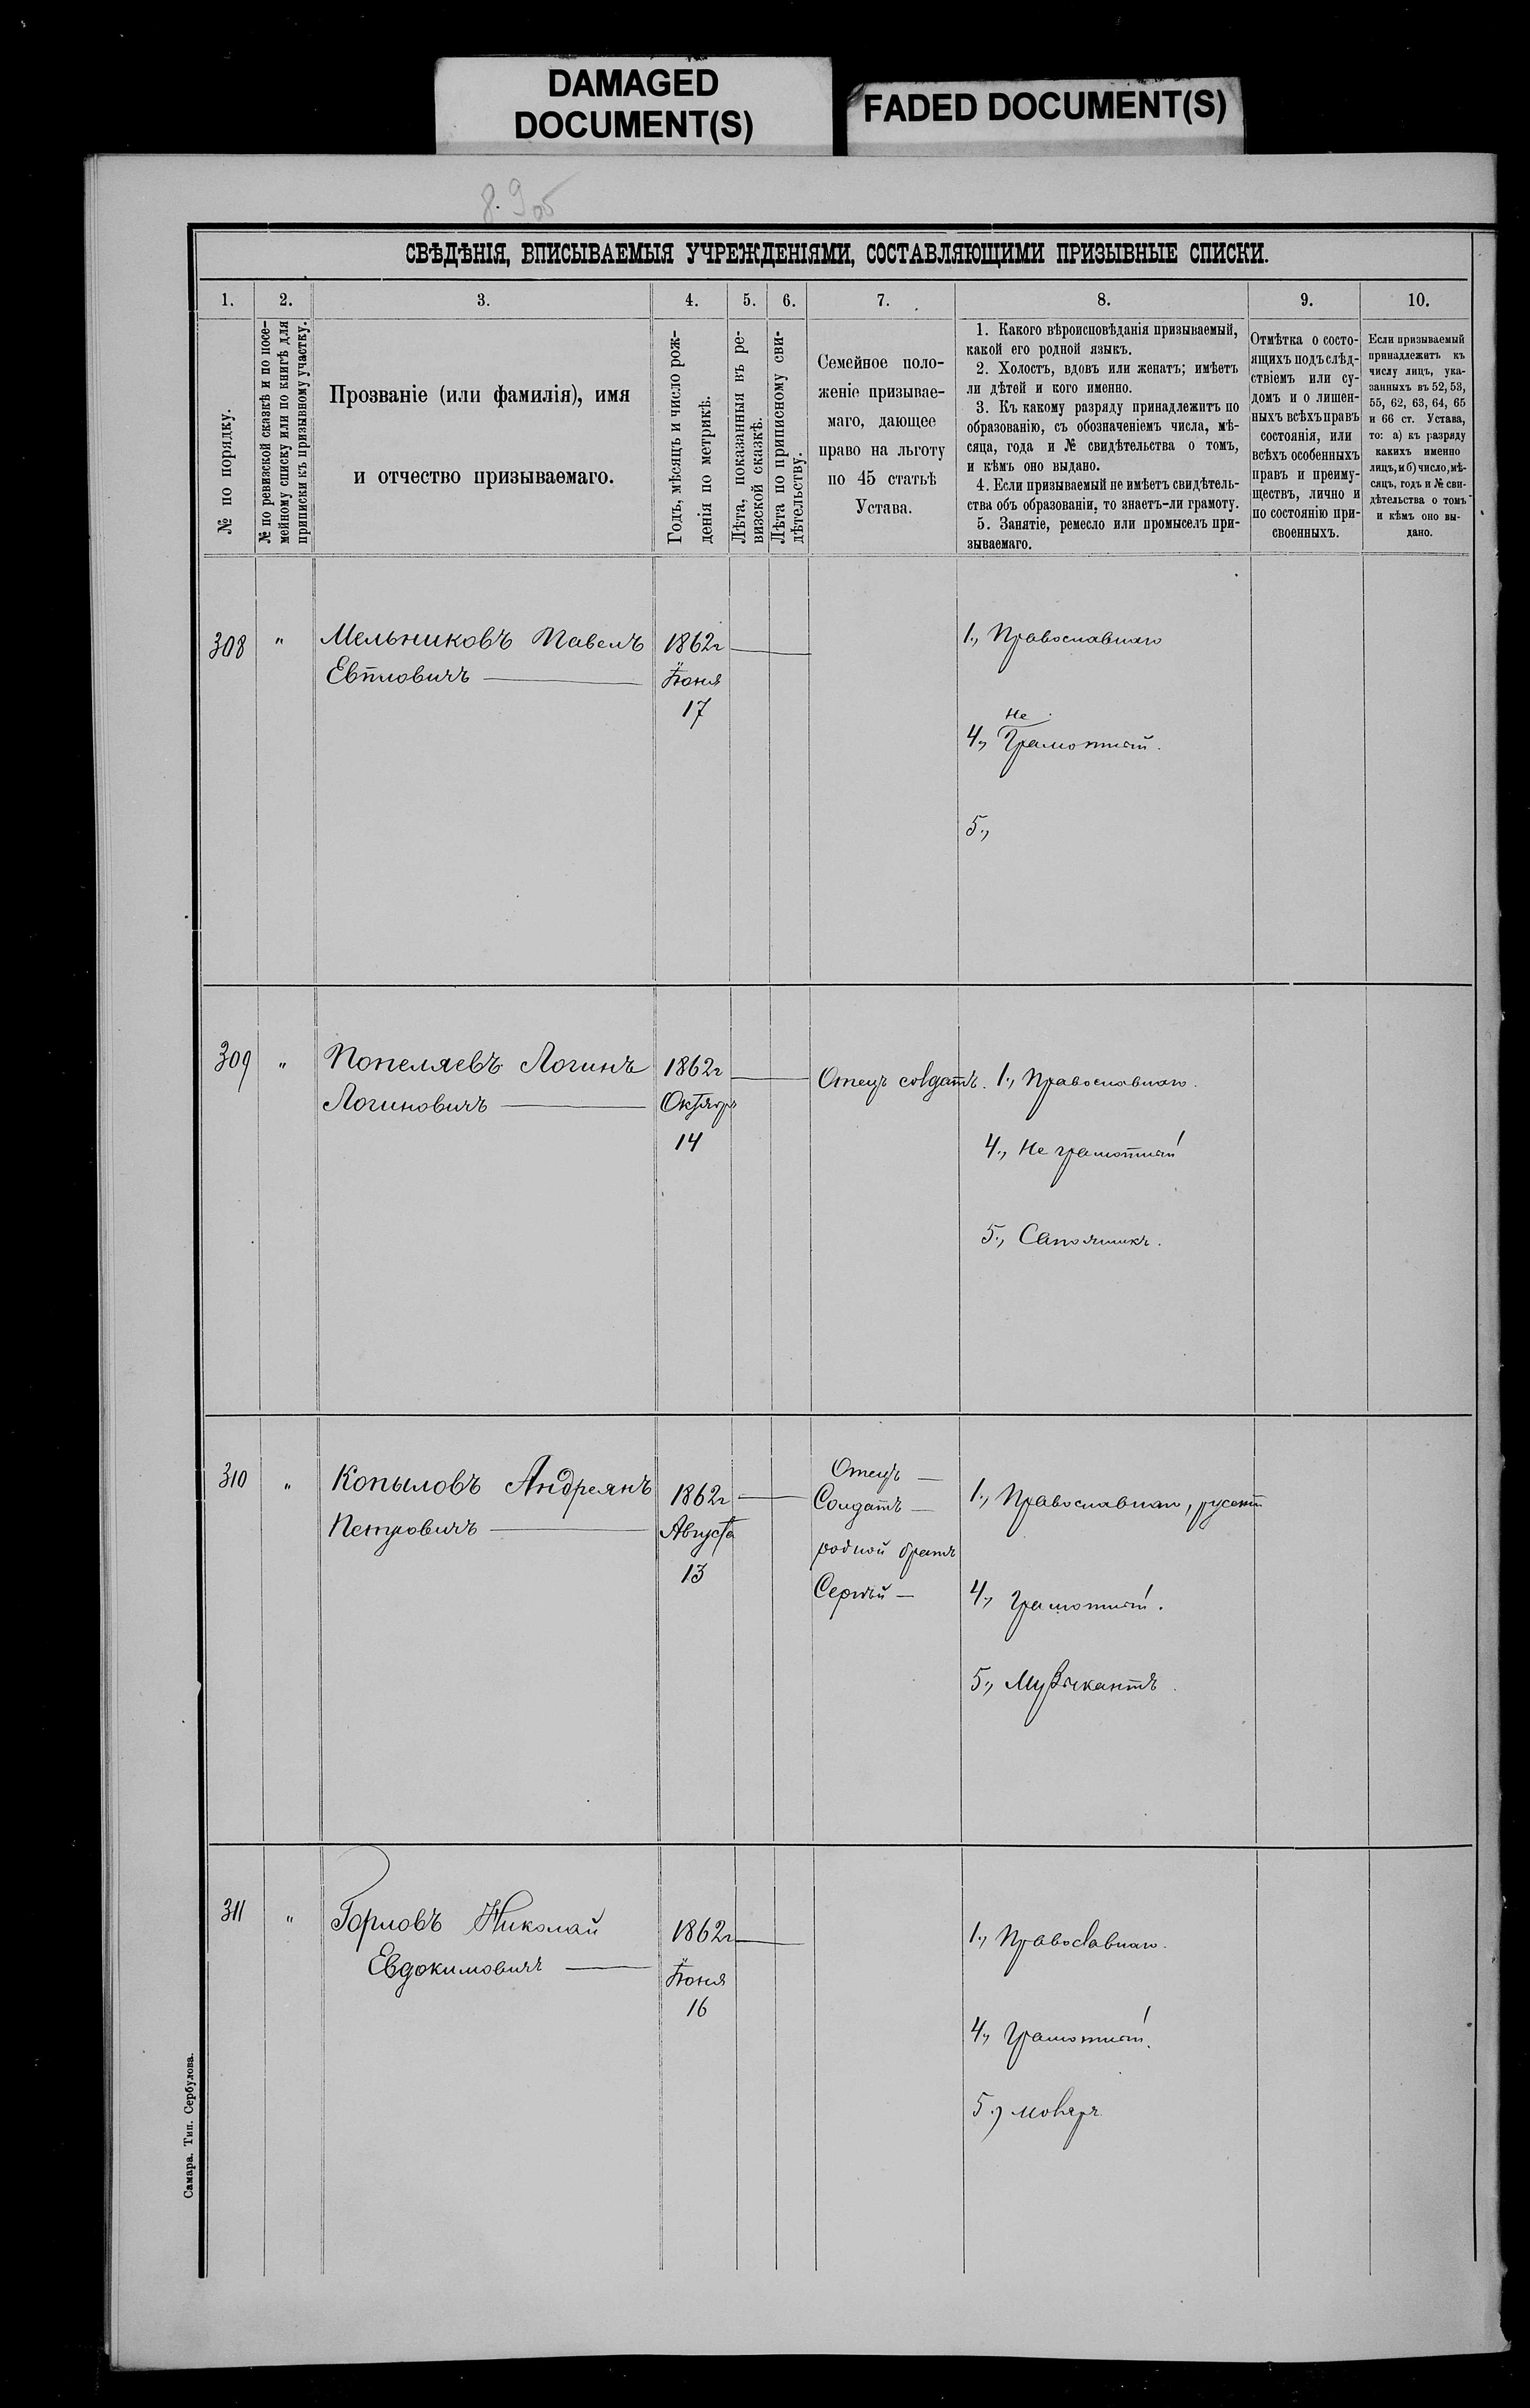 DAMAGED
DOCUMENT(S)
FADED DOCUMENT(S)
СВѢДѢНІЯ, ВПИСЫВАЕМЫЯ УЧРЕЖДЕНІЯМИ, СОСТАВЛЯЮЩИМИ ПРИЗЫВНЫЕ СПИСКИ.
1. 2. 3. 4. 5. 6. 7. 8. 9. 10.
№ по порядку.
№ по ревизской сказкѣ и по посе-
мейному списку или по книгѣ для
приписки къ призывному участку.
Прозваніе (или фамилія), имя
и отчество призываемаго.
Годъ, мѣсяцъ и число рож-
денія по метрикѣ.
Лѣта, показанныя въ ре-
визской сказкѣ.
Лѣта по приписному сви-
дѣтельству.
Семейное поло-
женіе призывае-
маго, дающее
право на льготу
по 45 статьѣ
Устава.
1. Какого вѣроисповѣданія призываемый,
какой его родной языкъ.
2. Холостъ, вдовъ или женатъ; имѣетъ
ли дѣтей и кого именно.
3. Къ какому разряду принадлежитъ по
образованію, съ обозначеніемъ числа, мѣ-
сяца, года и № свидѣтельства о томъ,
и кѣмъ оно выдано.
4. Если призываемый не имѣетъ свидѣтель-
ства объ образованіи, то знаетъ-ли грамоту.
5. Занятіе, ремесло или промыселъ при-
зываемаго.
Отмѣтка о состо-
ящихъ подъ слѣд-
ствіемъ или су-
домъ и о лишен-
ныхъ всѣхъ правъ
состоянія, или
всѣхъ особенныхъ
правъ и преиму-
ществъ, лично и
по состоянію при-
своенныхъ.
Если призываемый
принадлежитъ къ
числу лицъ, ука-
занныхъ въ 52, 53,
55, 62, 63, 64, 65
и 66 ст. Устава,
то: а) къ разряду
какихъ именно
лицъ, и б) число, мѣ-
сяцъ, годъ и № сви-
дѣтельства о томъ
и кѣмъ оно вы-
дано.
308 " Мельниковъ Павелъ 1862г 1., Православнаго
Евтловичъ Іюня
17
Не
4., Грамотный.
5.,
309 " Попеляевъ Логинъ 1862г Отецъ солдатъ. 1., Православнаго.
Логиновичъ Октября
14 4., Не грамотный
5., Сапожникъ.
310 " Копыловъ Андреянъ 1862г Отецъ 1., Православнаго,
Петровичъ Августа Солдатъ
13 родной братъ
Сергѣй 4., Грамотный.
5., Музыкантъ.
311 " Горловъ Николай 1862г 1., Православнаго.
Евдокимовичъ Іюня
16
4., Грамотный.
5.,
Самара. Тип. Сербулова.